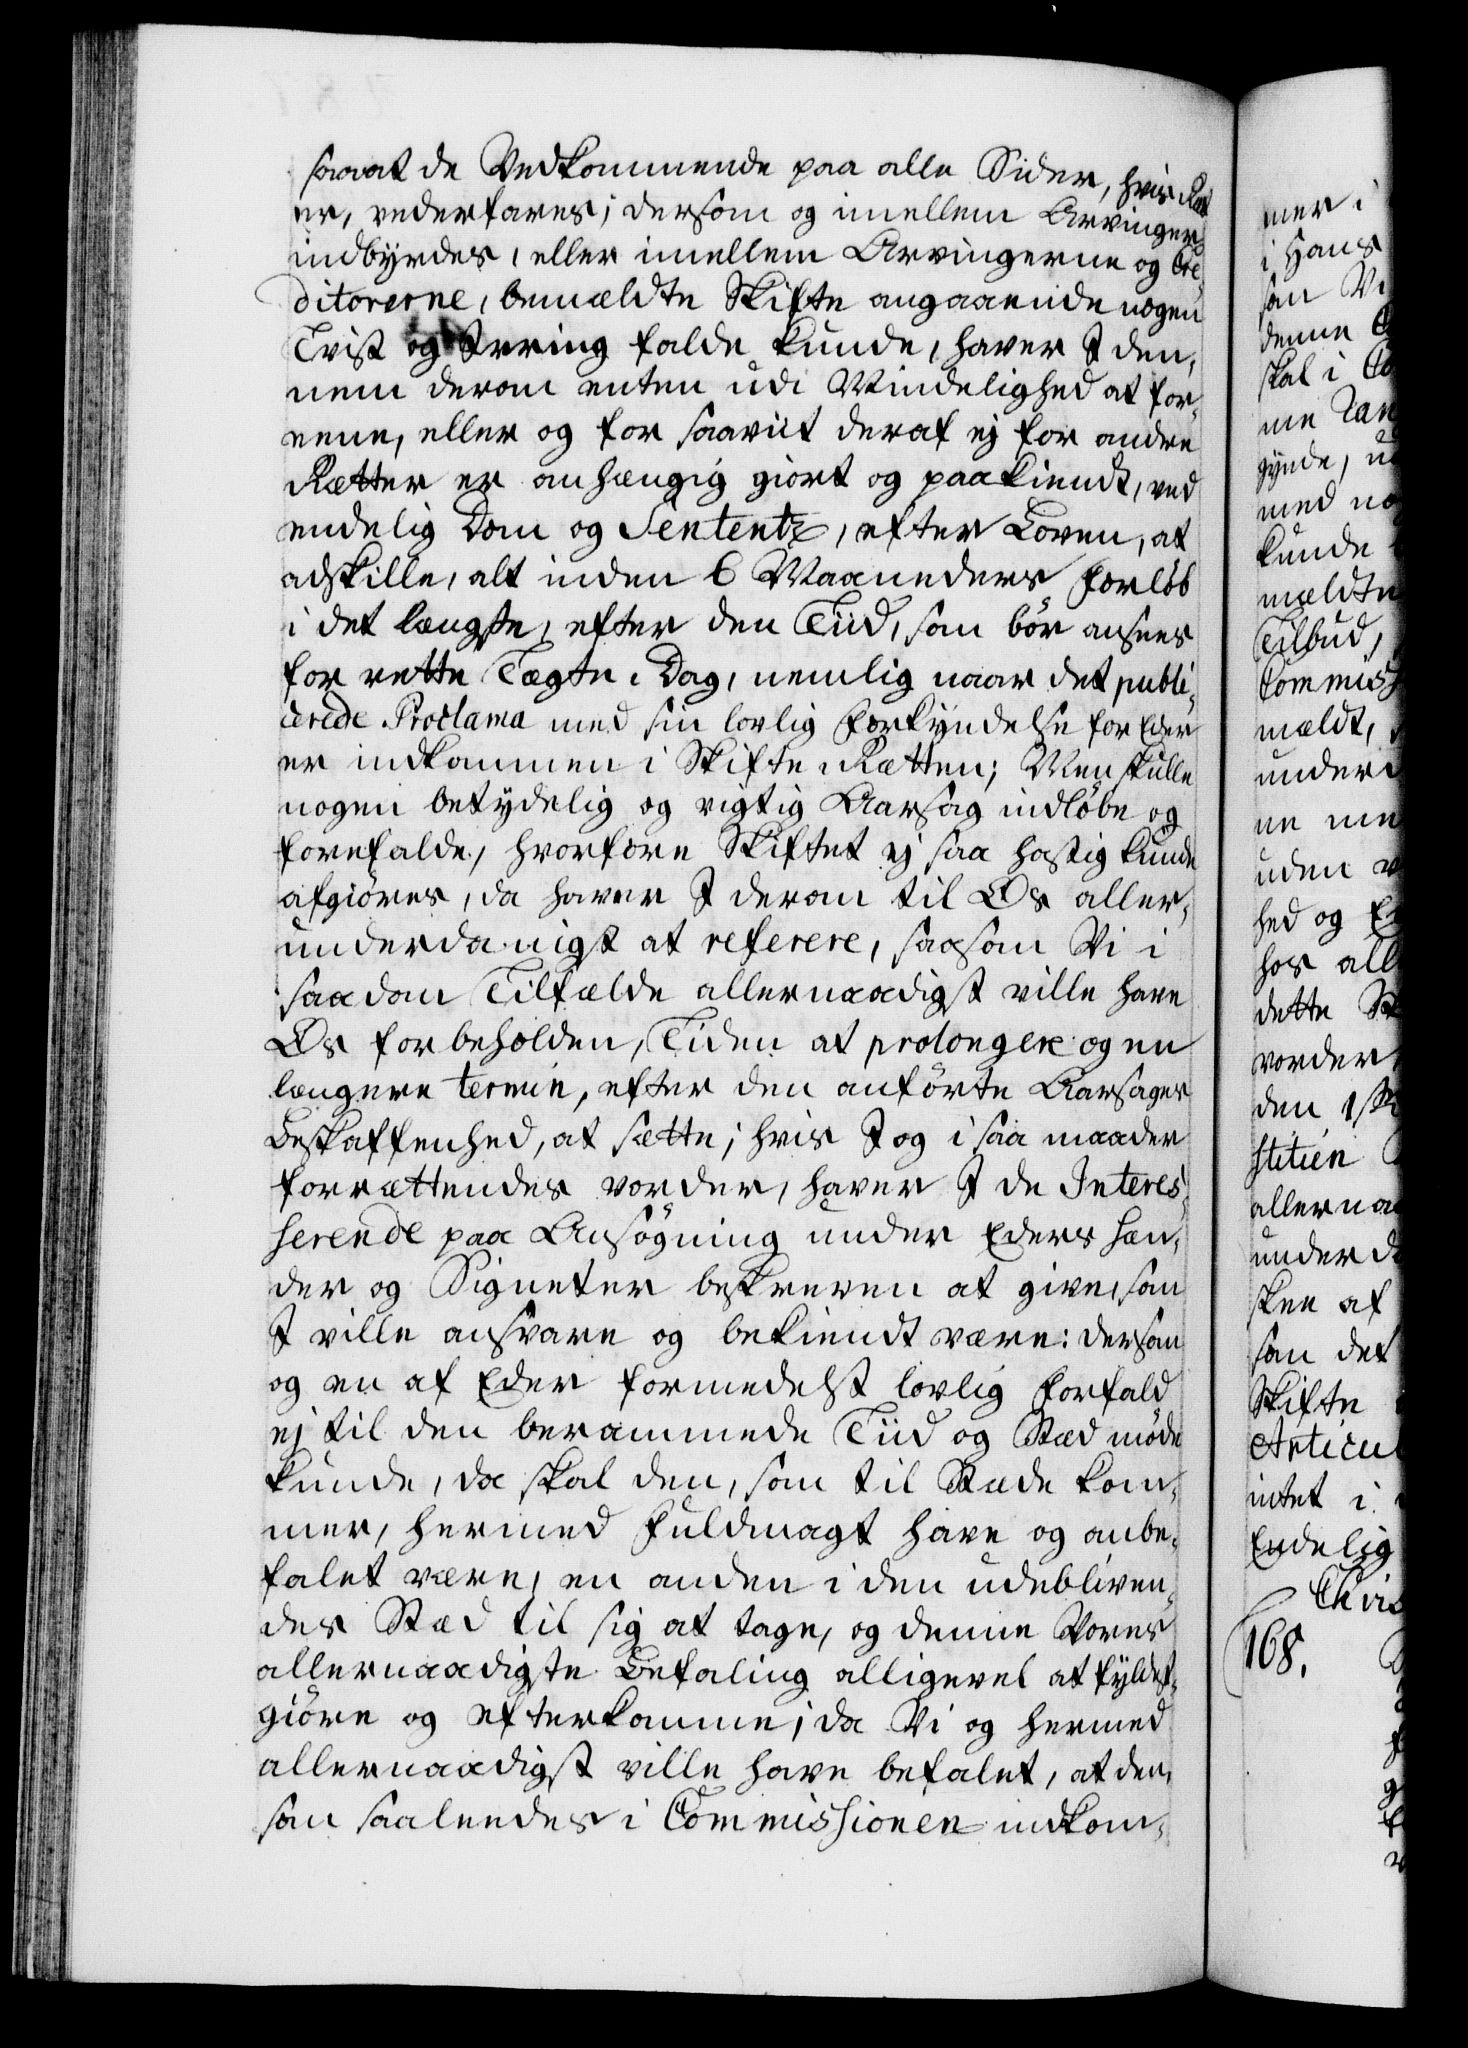 saa at de Vedkommende paa alle Sider, hvis Ret
er, vederfares; dersom og imellem Arvinger
indbyrdes, eller imellem Arvingerne og Cre-
ditorerne, bemældte Skifte angaaende nogen
Tvist og Irring falde kunde, haver I den-
nem derom enten udi Mindelighed at for-
eene, eller og for saavit deraf ej for andre
Retter er anhængig giort og paakiendt, ved
endelig Dom og Sententz, efter Loven, at
adskille, alt inden 6 Maaneders Forløb
i det længste, efter den Tiid, som bør ansees
for rette Tægte-Dag, nemlig naar det publi-
cerede Proclama med sin lovlig Forkyndelse for Eder
er indkommen i Skifte-Retten; Men skulle
nogen betydelig og vigtig Aarsag indløbe og
forefalde, hvorfore Skiftet ej saa hastig kunde
afgiøres, da haver I derom til Os aller-
underdanigst at referere, saasom Vi i
saadan Tilfælde allernaadigst ville have
Os forbeholden, Tiden at prolongere og en
længere termin, efter den anførte Aarsages
Beskaffenhed, at sætte; hvis I og i saa maader
forrettendes vorder, haver I de Interes-
serende paa Ansøgning under Eders Hæn-
der og Signeter beskreven at give, som
I ville ansvare og bekiendt være: dersom
og en af Eder formedelst lovlig Forfald
ej til den berammede Tiid og Stæd møde
kunde, da skal den, som til Stæde kom-
mer, hermed Fuldmagt have og anbe-
falet være, en anden i den udebliven-
des Stæd til sig at tage, og denne Vores
allernaadigste Befaling alligevel at fyldest-
giøre og efterkomme; da Vi og hermed
allernaadigst ville have befalet, at den,
som saaleedes i Commissionen indkom-
mer i
i Hans
som Vi
denne
skal i Co
me Tan
gynde, ud
med no
kunde
mældte
Tilbud,
Commiss
mældt,
under
ne me
uden
hed og E
hos all
dette
vorder
den 1
stitien
allernaa
underda
skee af
som det
Skifte
Articul
intet i
Endelig
Chris
168.